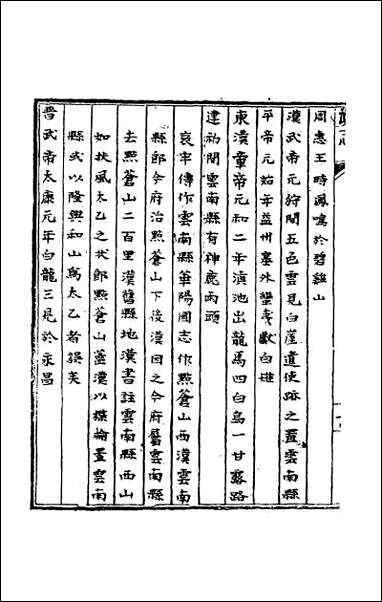 周惠王時鳳鳴於碧雞山
漢武帝元狩間五色雲見白崖遣使跡之置雲南縣
平帝元始年益州塞外蠻夷獻白雉
東漢章帝元和二年滇池出龍馬四白烏一甘露降
建初間雲南縣有神鹿兩頭
哀牢傳作雲南縣華陽國志作點蒼山西漢雲南
縣即今府治點蒼山下後漢因之今府屬雲南縣
去點蒼山二百里漢舊縣地漢書註雲南縣西山
如扶風太乙之狀即點蒼山蓋漢以 置雲南
縣或以隆興和山為太乙者誤矣
晉武帝太康元年白龍三見於永昌